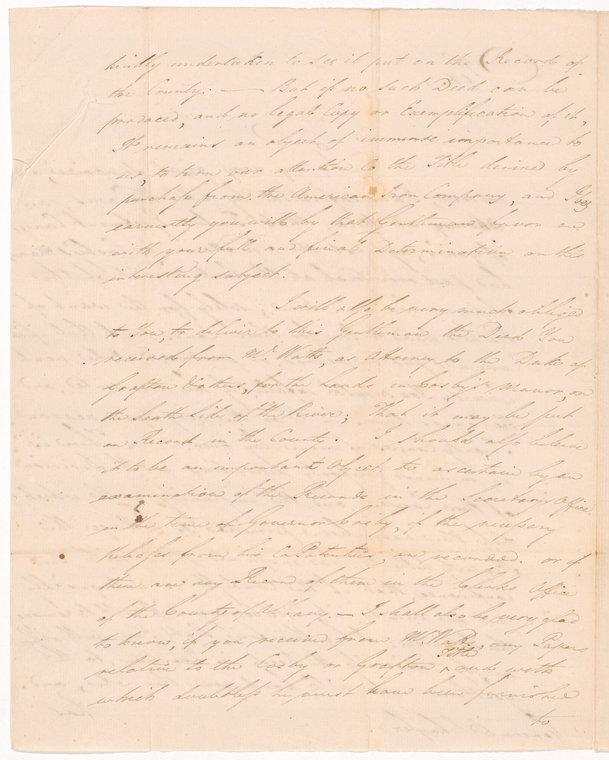 kindly undertaken to see it put on the Records of
the County. — But if no such Deed can be
produced, and no legal Copy or Exemplification of it,
It remains an object of immense importance to
us, to turn our attention to the Title derived by
purchase from the American Iron Company, and I beg
earnestly you will by that Gentleman favor me
with your full and final Determination on this
interesting subject.
I will also be very much obliged
to You, to deliver to this Gentleman the Deed You
received from Mr. Watts, as Attorney to the Duke of
Grafton & others, for the Lands in Cosby's Manor, on
the South Side of the River; That it may be put
on Record in the County. I should also believe
it to be an important Object to ascertain by an
examination of the Records in the Secretary's Office,
in the time of Governor Cosby, if the necessary
Releases from his CoPatentees, are recorded. or if
there are any Record of them in the Clerks Office
of the County of Albany. — I shall also be very glad
to know, if you received from Mr. Watts any Papers
relative to the Cosby or Grafton Title, and with
which doubtless he must have been furnished
to